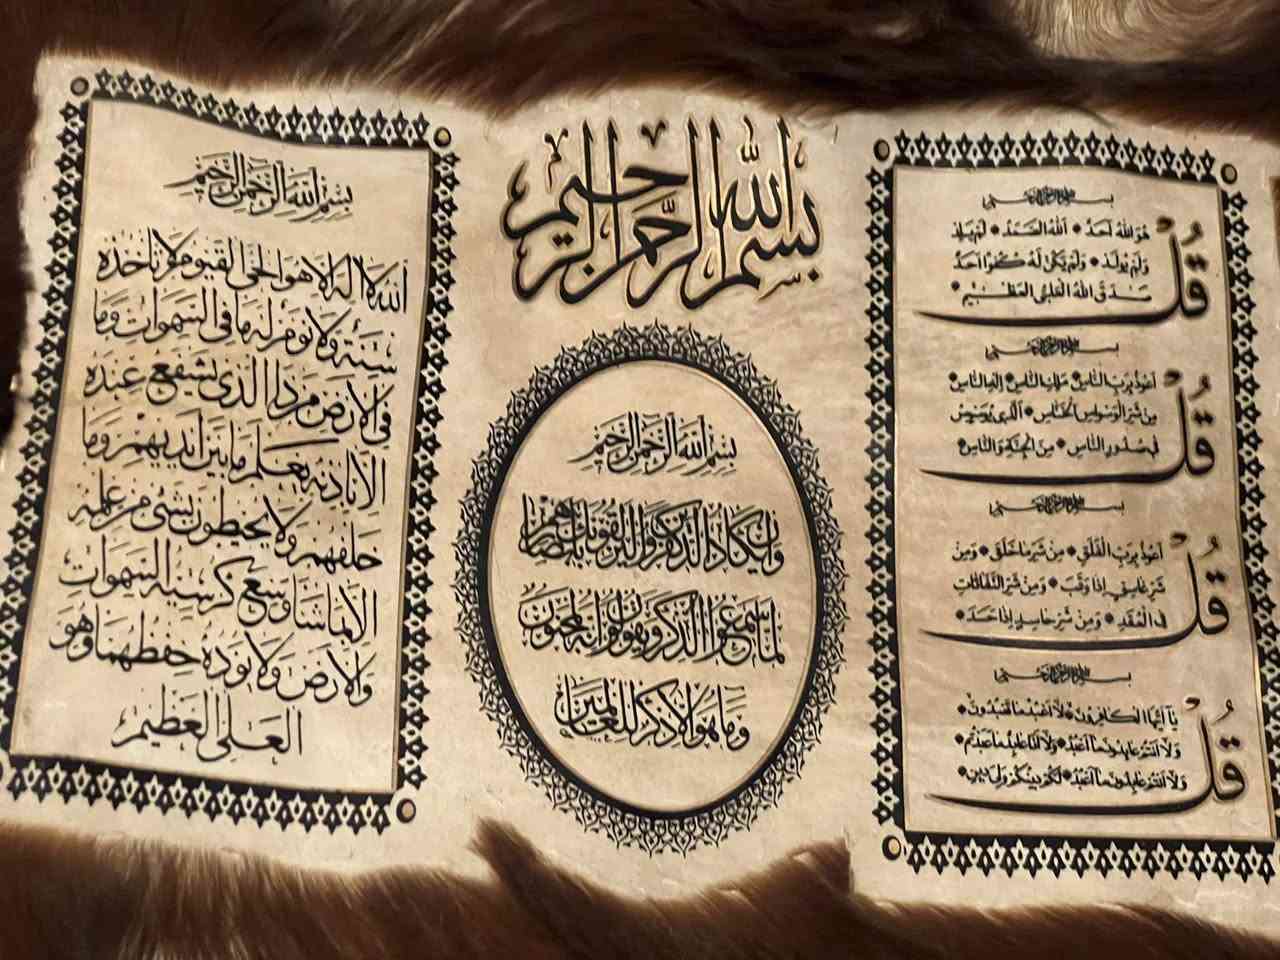 بسم الله الرحمن الرحيم
قل
بسم الله الرحمن الرحيم
هو الله احد * الله الصمد * لم يلد
ولم يولد * ولم يكن له كفوا احد
صدق الله العلي العظيم *
قل
بسم الله الرحمن الرحيم
اعوذ برب الناس * ملك الناس * اله الناس *
من شر الوسواس الخناس * الذي يوسوس
في صدور الناس * من الجنة والناس *
قل
بسم الله الرحمن الرحيم
اعوذ برب الفلق * من شر ما خلق * ومن
شر غاسق اذا وقب * ومن شر النفاثات
في العقد * ومن شر حاسد اذا حسد *
قل
بسم الله الرحمن الرحيم
يا ايها الكافرون * لا اعبد ما تعبدون *
ولا انتم عابدون ما اعبد * ولا انا عابد ما عبدتم *
ولا انتم عابدون ما اعبد * لكم دينكم ولي دين *
بسم الله الرحمن الرحيم
وان يكاد الذين كفروا ليزلقونك بابصارهم
لما سمعوا الذكر ويقولون انه لمجنون
وما هو الا ذكر للعالمين
بسم الله الرحمن الرحيم
الله لا اله الا هو الحي القيوم لا تاخذه
سنة ولا نوم له ما في السموات وما
في الارض من ذا الذي يشفع عنده
الا باذنه يعلم ما بين ايديهم وما
خلفهم ولا يحيطون بشئ من علمه
الا بما شا وسع كرسيه السموات
والارض ولا يوده حفظهما وهو
العلي العظيم